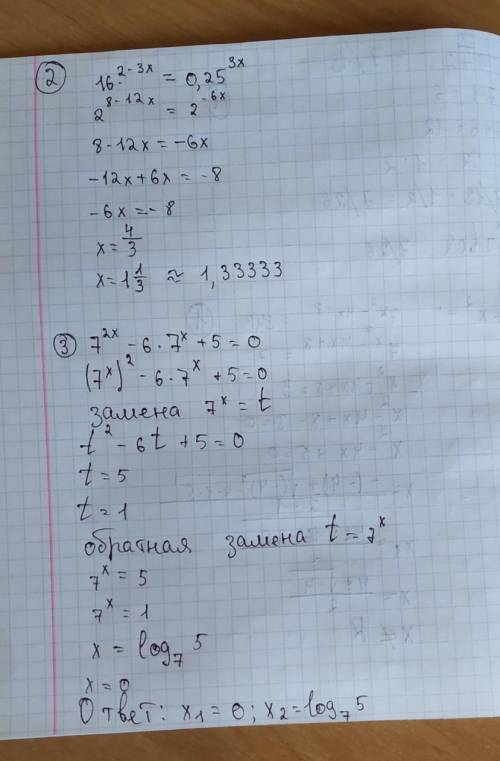 2
16^{2-3x} = 0,25^{3x}
2^{8-12x} = 2^{-6x}
8-12x = -6x
-12x+6x = -8
-6x = -8
x = 4/3
x = 1 1/3 ≈ 1,33333
3 7^{2x} - 6 · 7^x + 5 = 0
(7^x)^2 - 6 · 7^x + 5 = 0
замена 7^x = t
t^2 - 6t + 5 = 0
t = 5
t = 1
обратная замена t = 7^x
7^x = 5
7^x = 1
x = log_7 5
x = 0
Ответ: x_1 = 0; x_2 = log_7 5